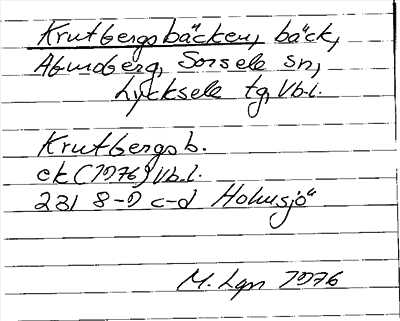 Krutbergsbäcken, bäck,
Abmoberg, Sorsele sn,
Lycksele tg, Vb.l.
Krutbergsb.
ek (1976) Vb.l.
23I 8-9 c-d Holmsjö
M. Lgn 1976